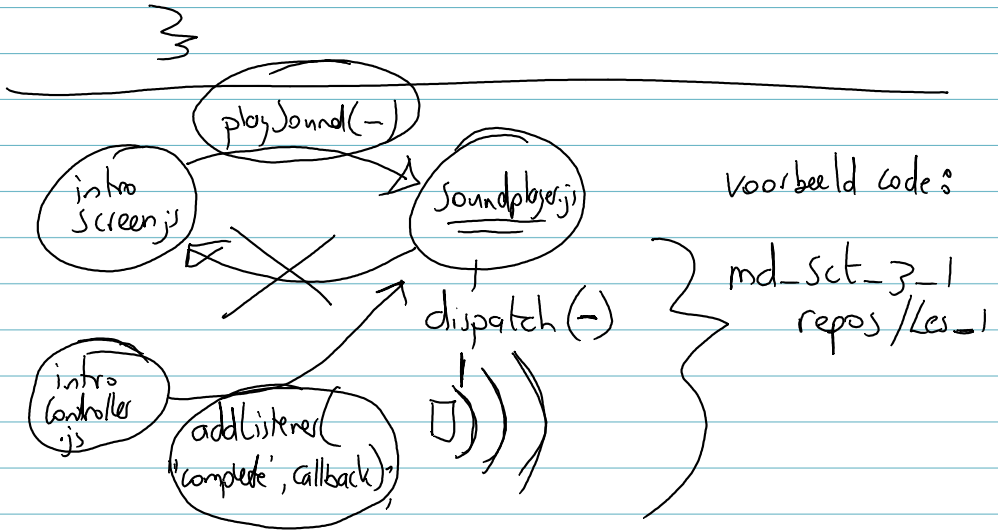 }
playSound(-)
intro
screen.js
soundplayer.js
voorbeeld code:
md_sct_3_1
repos/Les_1
dispatch(-)
intro
controller
.js
addListener(
'complete', callback);